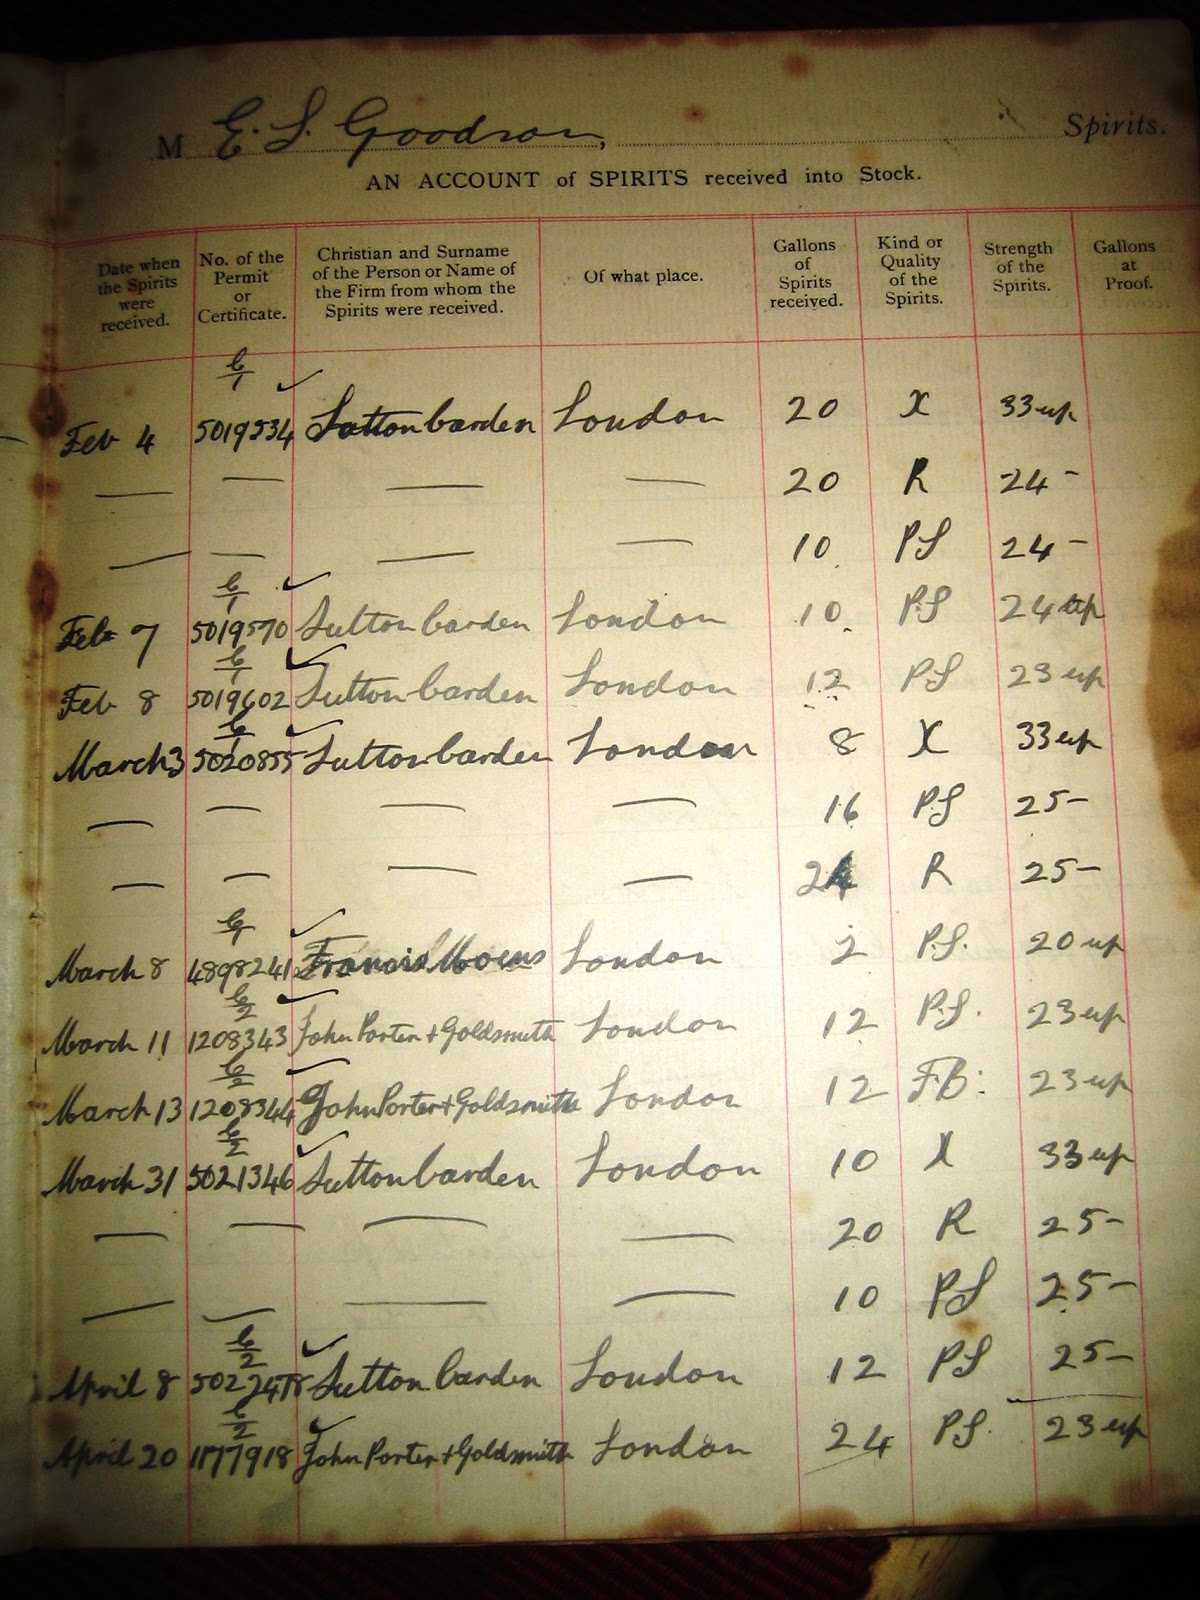 M E. S. Goodson, Spirits.
AN ACCOUNT of SPIRITS received into Stock.
Date when the Spirits were received. No. of the Permit or Certificate. Christian and Surname of the Person or Name of the Firm from whom the Spirits were received. Of what place. Gallons of Spirits received. Kind or Quality of the Spirits. Strength of the Spirits. Gallons at Proof.
Feb 4 5019534 Sutton Carden London 20 X 33 up
— — — — 20 R 24 -
— — — — 10 PS 24 -
Feb 7 5019570 Sutton Carden London 10 PS 24 up
Feb 8 5019602 Sutton Carden London 12 PS 23 up
March 3 5020855 Sutton Carden London 8 X 33 up
— — — — 16 PS 25 -
— — — — 24 R 25 -
March 8 4898241 Francis London 2 P.S. 20 up
March 11 1208343 John Porter + Goldsmith London 12 P.S. 23 up
March 13 1208344 John Porter + Goldsmith London 12 FB: 23 up
March 31 5021346 Sutton Carden London 10 X 33 up
— — — — 20 R 25 -
— — — — 10 PS 25 -
April 8 Sutton Carden London 12 PS 25 -
April 20 1177918 John Porter + Goldsmith London 24 PS. 23 up